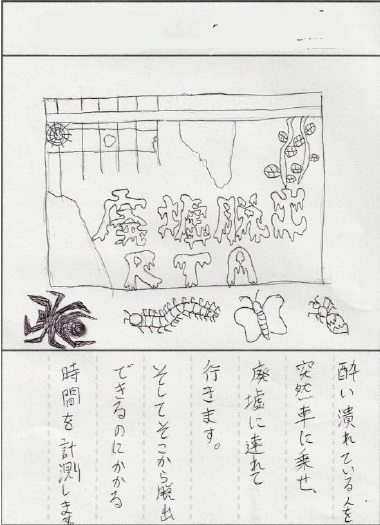 廃墟脱出
RTA
酔い潰れている人を
突然車に乗せ、
廃墟に連れて
行きます。
そしてそこから脱出
できるのにかかる
時間を計測します。